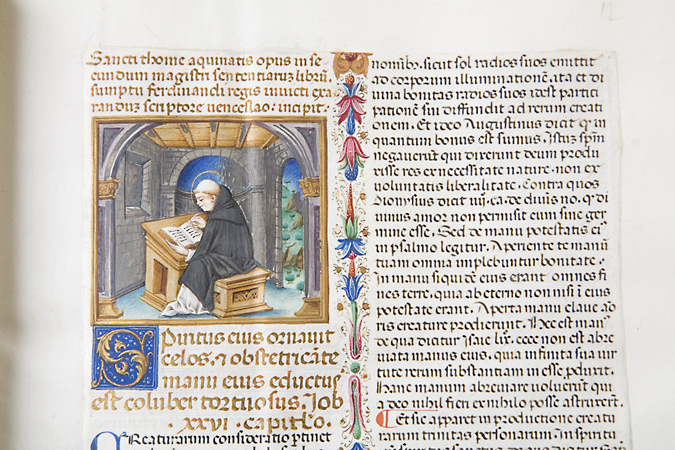 12
Sancti thome aquinatis opus in se
cundum magistri sententiarũ librũ
sumptu ferdinandi regis iuuicti exa
randuz scriptore venceslao: incipit.
Spiritus eius ornauit
celos, & obstetricãte
manu eius eductus
est coluber tortuosus, Iob
.xxvi. capitło.
Creaturarum consideratio ꝑtinet
nomib, sicut sol radios suos emittit
ad corporum illuminationẽ, ita et di
uina bonitas radios suos idest partici
pationẽ sui diffundit ad rerum creati
onem. Et ideo Augustinus dicit q in
quantum bonus est sumus, istuz
negauerũt qui dixerunt deum produ
xisse res ex necessitate nature, non ex
voluntatis liberalitate. Contra quos
Dionysius dicit iiij. ca. de diuis no. q di
uinus amor non permisit eum sine ger
mine esse. Sed de manu potestatis ei
in psalmo legitur. Aperiente te manũ
tuam omnia implebuntur bonitate.
In manu si quidẽ eius erant omnes fi
nes terre, quia ab eterno non nisi ĩ eius
potestate erant. Aperta manu claue
ris creature prodierunt. Hec est man
de qua dicitur Isaie lix. ecce non est abre
uiata manus eius, quia infinita sua vir
tute rerum substantiam in esse ꝓduxit.
Hanc manum abreuiare voluerũt qui
a deo nihil fieri ex nihilo posse astruxerũt.
Et sic apparet in productione creatu
rarum trinitas personarum. in spiritu